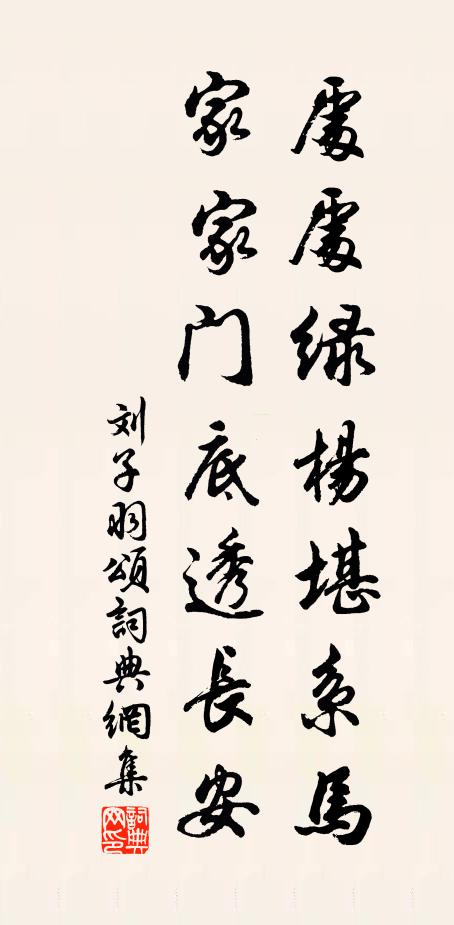 處處绿楊堪系馬
家家门底透長安
刘子羽頌詞典網集
詞典網印